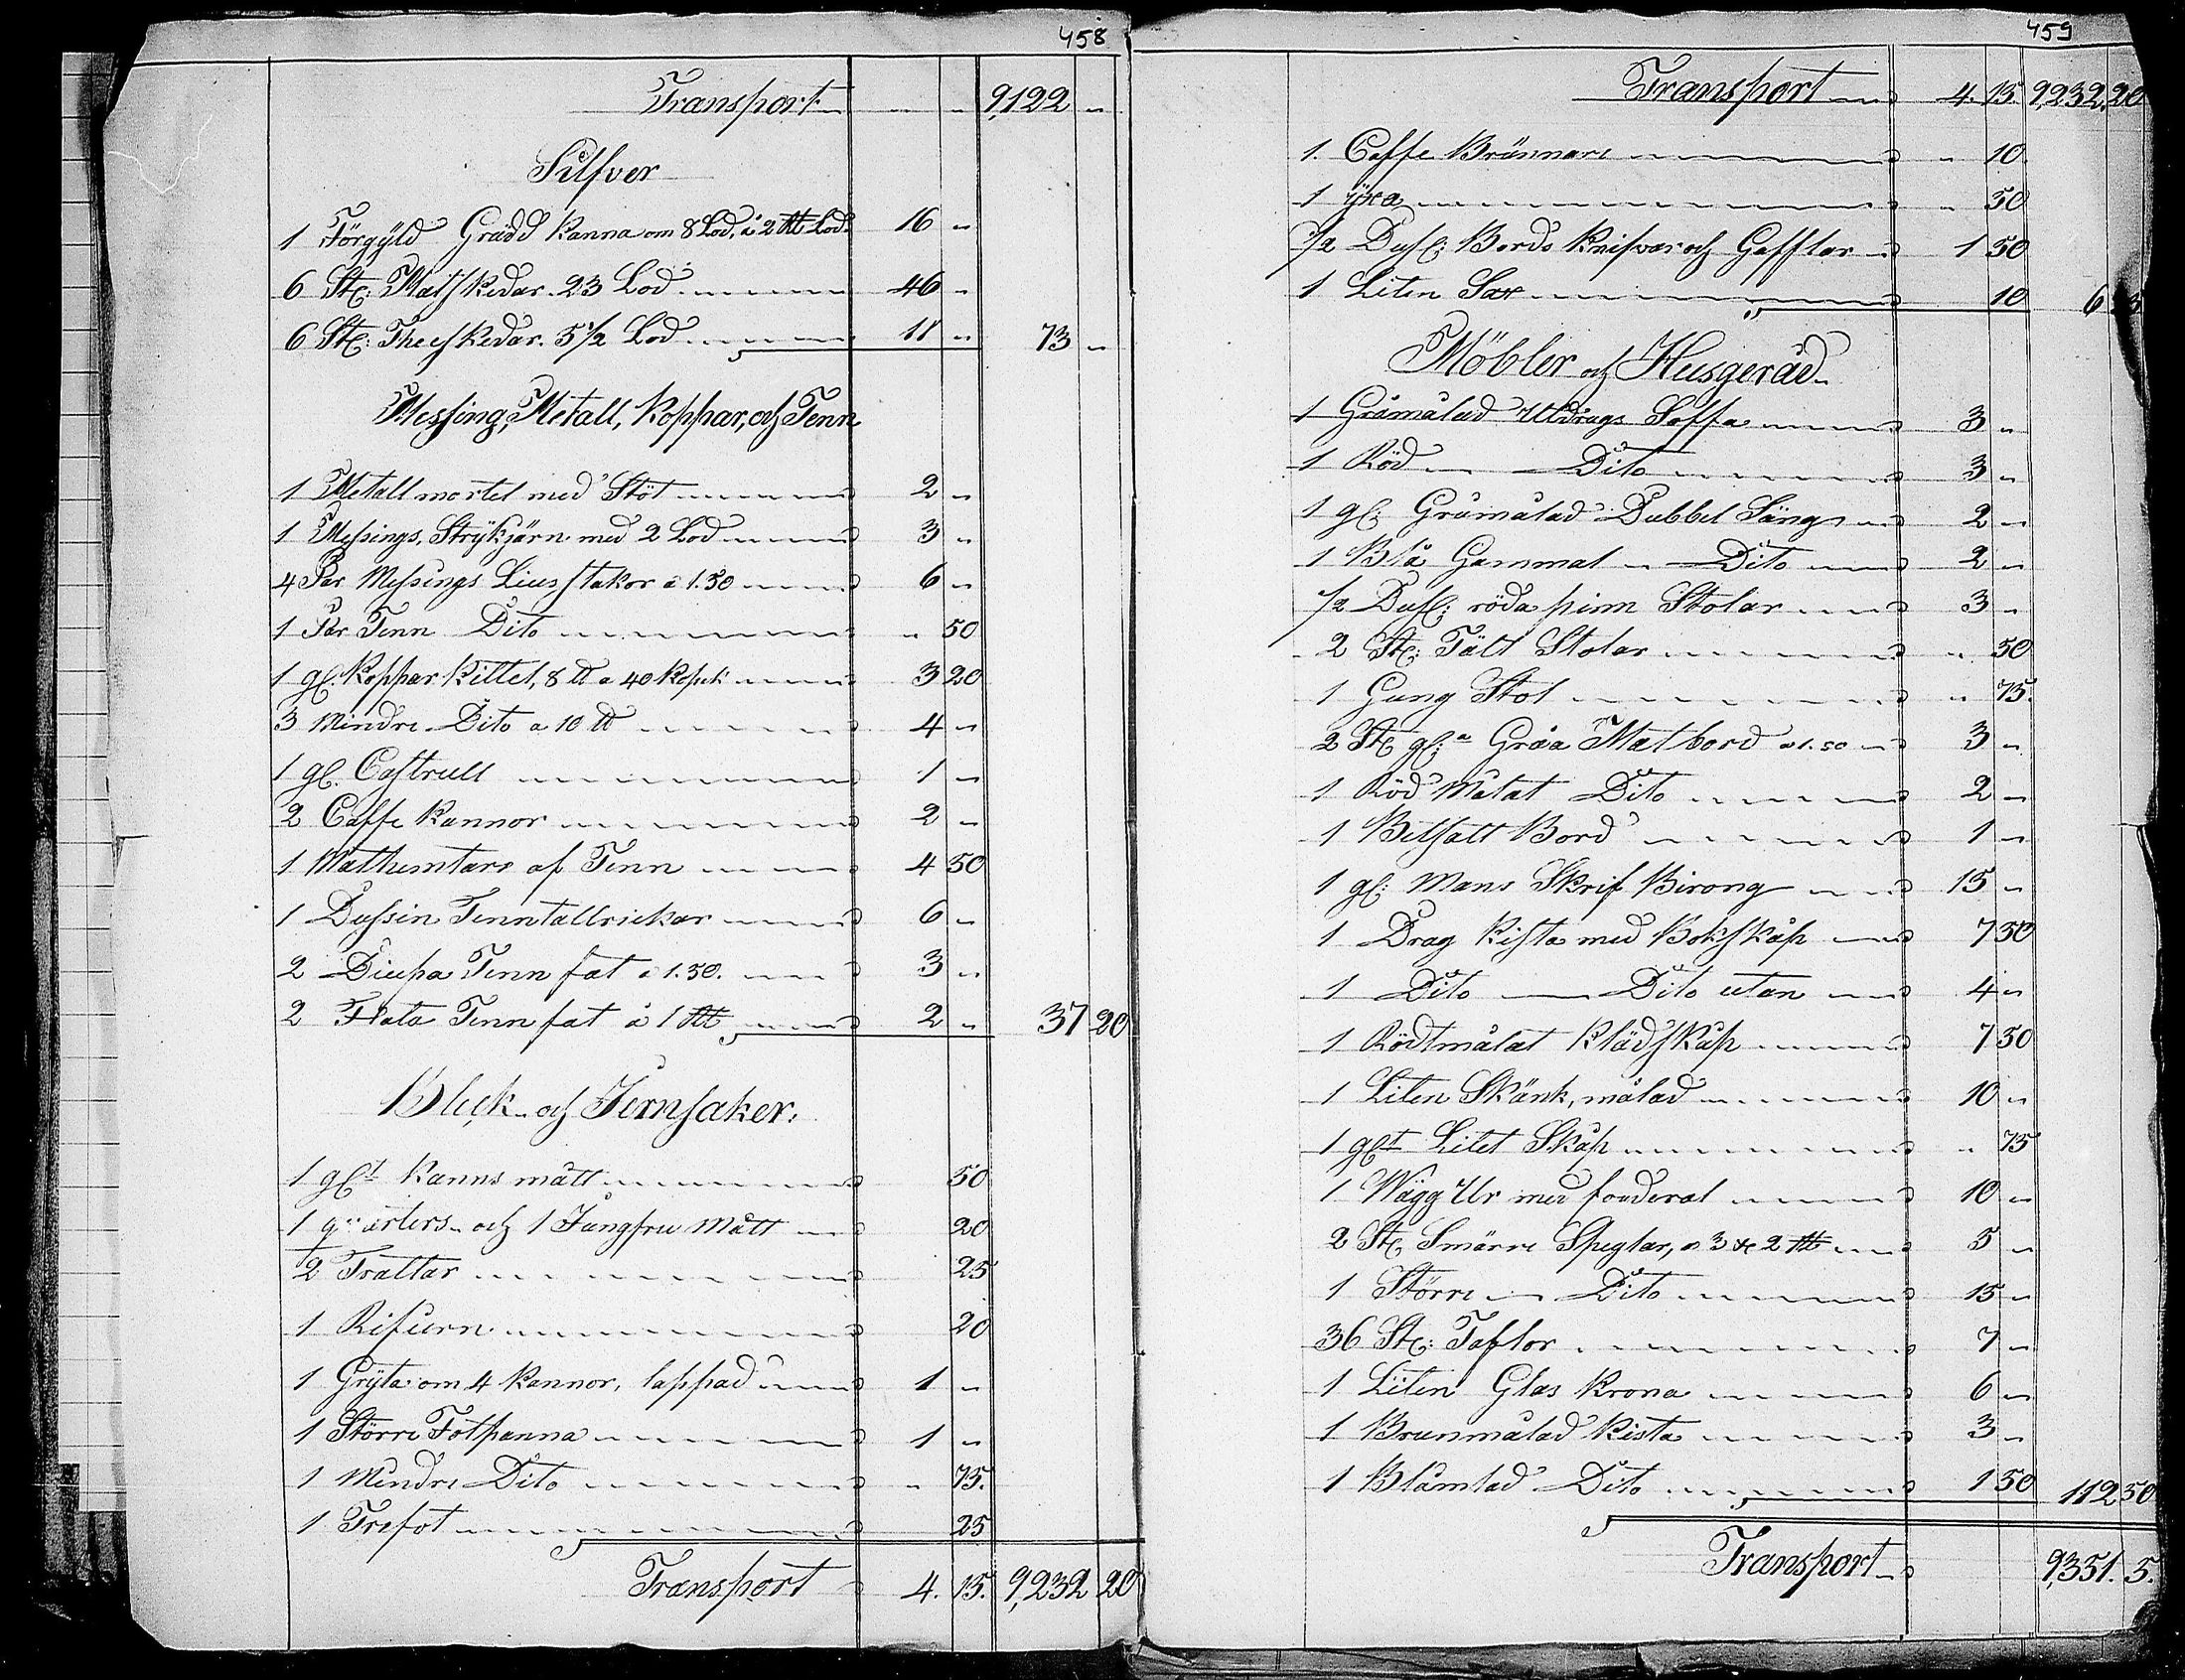 458
Transport 9,122 "
Silfver
1 Förgyld Grädd kanna om 8 Lod, à 2 Rb Lod. 16 "
6 St: Matskedar 23 Lod 46 "
6 St: Theeskedar. 5 1/2 Lod 11 " 73 "
Messing, Metall, Koppar, och Tenn
1 Metall mortel med Stöt 2 "
1 Messings, Strykjärn med 2 Lod 3 "
4 Par Messings Liusstakor a 1.50 6 "
1 Par Tenn Dito " 50
1 gl. Koppar Kittel, 8 ℔ a 40 Kopek 3 20
3 Mindre Dito a 10 ℔ 4 "
1 gl. Castrull 1 "
2 Caffe Kannor 2 "
1 Mathemtare af Tenn 4 50
1 Dussin Tenntallrickar 6 "
2 Diupa Tenn fat a 1.50. 3 "
2 Flata Tenn fat à 1 Rb 2 " 37 20
Bleck- och Jernsaker.
1 glt Kanns mått 50
1 qvarters- och 1 Jungfru Mått 20
2 Trattar 25
1 Rifiern 20
1 Gryta om 4 Kannor, lappad 1 "
1 Större Fotpanna 1 "
1 Mindre Dito " 75.
1 Trefot 25
Transport 4. 15. 9,232 20
459
Transport 4. 15. 9,232 20
1. Caffe Brännare " 10
1 yxa " 50
1/2 Duss: Bords Knifvar och Gafflar 1 50
1 Liten Sax 10 6
Möbler och Husgeråd
1 Gråmålad Utdrags Soffa 3 "
1 Röd Dito 3 "
1 gl: Gråmålad Dubbel Säng 2 "
1 Blå Gammal Dito 2 "
1/2 Duss: röda pinn Stolar 3 "
2 St: Fält Stolar " 50
1 Gung Stol " 75.
2 St gl:a Gråa Matbord a 1.50 3 "
1 Röd Målat Dito 2 "
1 Betsatt Bord 1 "
1 gl: Mans Skrif Birong 15 "
1 Drag Kista med Bokskåp 7 50
1 Dito Dito utan 4 "
1 Rödtmålat Klädskåp 7 50
1 Liten Skänk, målad 10 "
1 glt Litet Skåp " 75
1 Wägg Ur med fouderal 10 "
2 St Smärre Speglar, a 3 & 2 Rb 5 "
1 Större Dito 15 "
36 St: Taflor 7 "
1 Liten Glas Krona 6 "
1 Brunmålad Kista 3 "
1 Blåmlad Dito 1 50 112 50
Transport 9,351. 5.